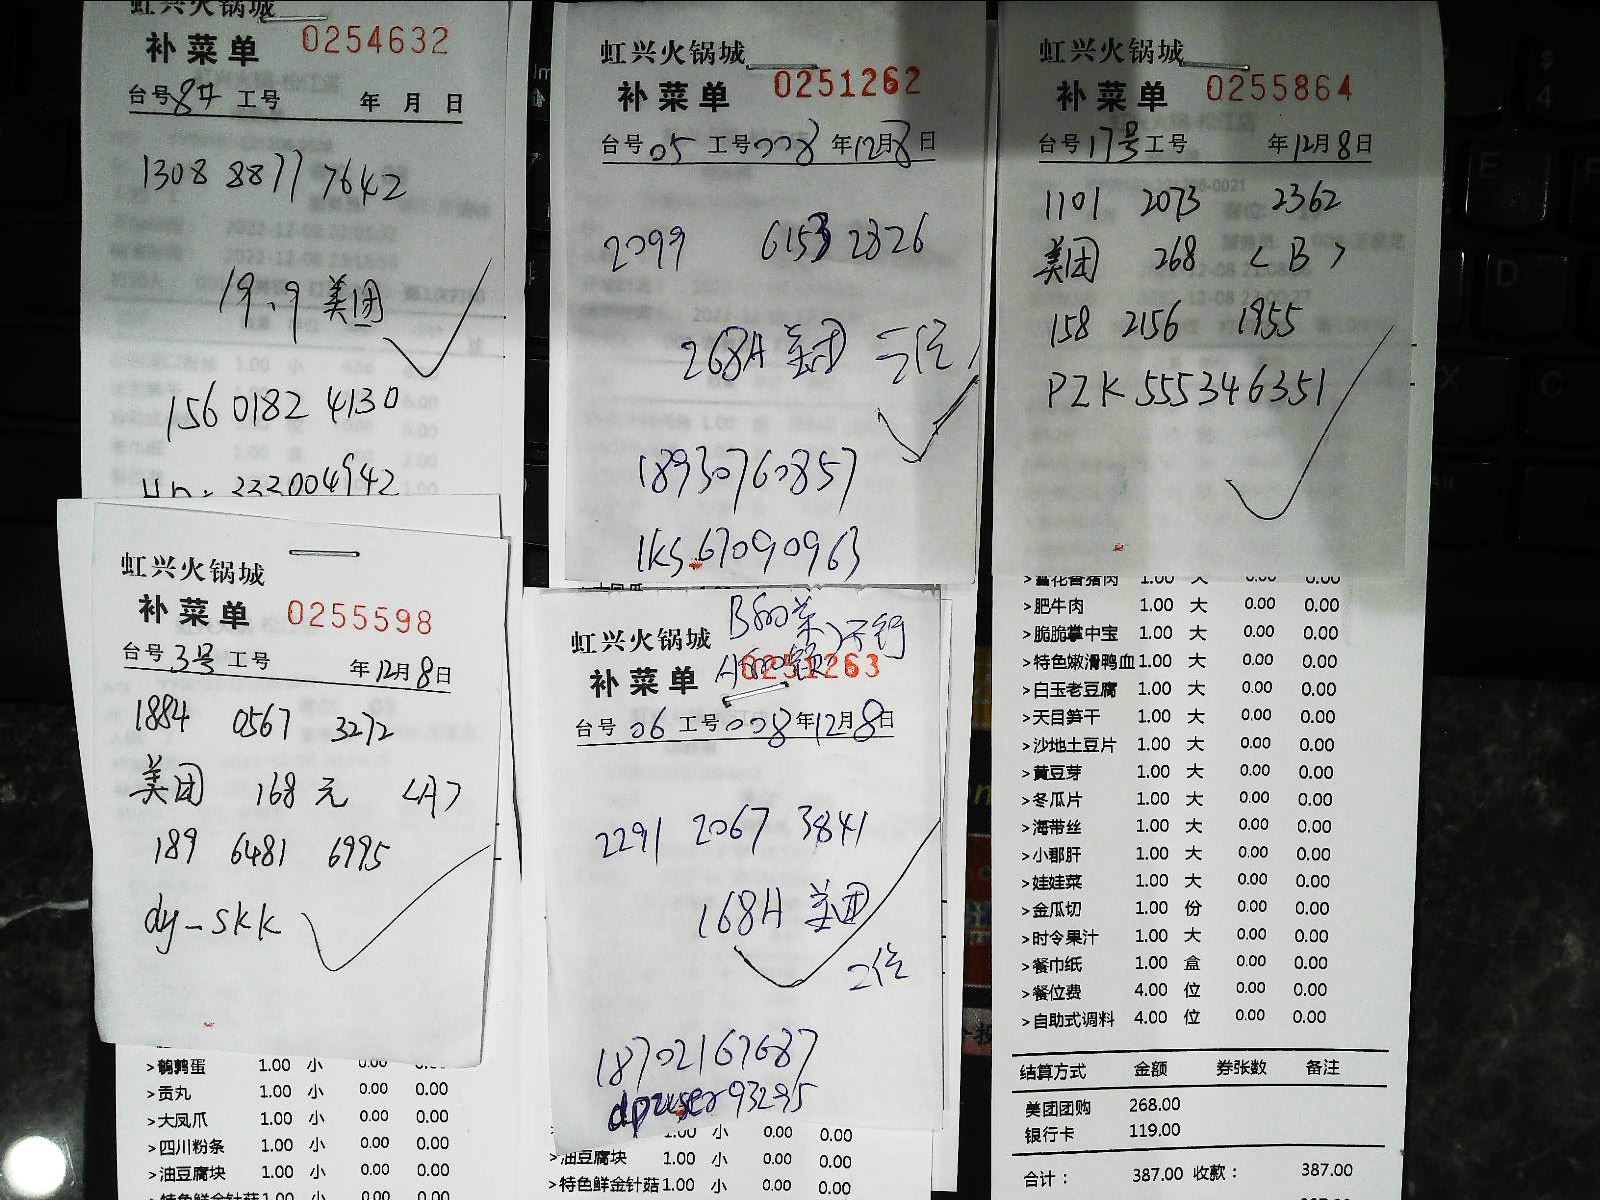 虹兴火锅城
补菜单 0254632
台号 8号 工号 年 月 日
1308 8877 7642
19.9 美团
156 0182 4130
虹兴火锅城
补菜单 0251262
台号 05 工号 008 年 12月 8日
2099 6153 2826
268A 美团 三位
18930760857
1ks_67090963
虹兴火锅城
补菜单 0255864
台号 17号 工号 年 12月 8日
1101 2073 2362
美团 268 <B>
158 2156 1955
PZK 555346351
虹兴火锅城
补菜单 0255598
台号 3号 工号 年 12月 8日
1884 0567 3272
美团 168元 <A>
189 6481 6995
dy_skk
>鹌鹑蛋 1.00 小 0.00
>贡丸 1.00 小 0.00 0.00
>大凤爪 1.00 小 0.00 0.00
>四川粉条 1.00 小 0.00 0.00
>油豆腐块 1.00 小 0.00 0.00
>特色鲜金针菇 1.00 小 0.00 0.00
虹兴火锅城
补菜单 0251263
台号 06 工号 008 年 12月 8日
2291 2067 3841
168A 美团
二位
18702167687
dpuser93295
1.00 小 0.00 0.00
>油豆腐块 1.00 小 0.00 0.00
>特色鲜金针菇 1.00 小 0.00 0.00
>雪花香猪肉 1.00 大 0.00 0.00
>肥牛肉 1.00 大 0.00 0.00
>脆脆掌中宝 1.00 大 0.00 0.00
>特色嫩滑鸭血 1.00 大 0.00 0.00
>白玉老豆腐 1.00 大 0.00 0.00
>天目笋干 1.00 大 0.00 0.00
>沙地土豆片 1.00 大 0.00 0.00
>黄豆芽 1.00 大 0.00 0.00
>冬瓜片 1.00 大 0.00 0.00
>海带丝 1.00 大 0.00 0.00
>小郡肝 1.00 大 0.00 0.00
>娃娃菜 1.00 大 0.00 0.00
>金瓜切 1.00 份 0.00 0.00
>时令果汁 1.00 大 0.00 0.00
>餐巾纸 1.00 盒 0.00 0.00
>餐位费 4.00 位 0.00 0.00
>自助式调料 4.00 位 0.00 0.00
结算方式 金额 券张数 备注
美团团购 268.00
银行卡 119.00
合计： 387.00 收款： 387.00